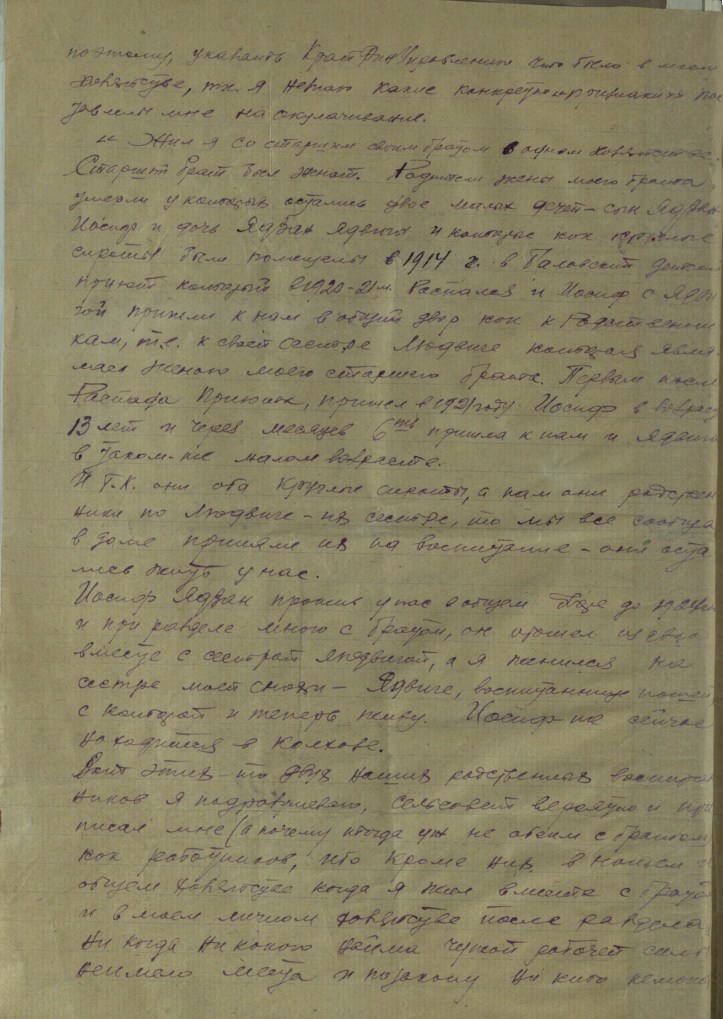 поэтому, указать Край Фин Управлению что было в моем
хозяйстве, т.к. я не знаю какие конкретно
мне на окулачивание.
Жил я со старшим своим братом в одном хозяйстве.
Старший брат был женат. Родители жены моего брата
умерли у которых остались двое малых детей – сын Ядзван
Иосиф и дочь Ядзван Ядвига и которые как круглые
сироты были помещены в 1914 г. в Павловский детский
приют который в 1920-21 г. Распался и Иосиф с Ядви
гой пришли к нам в общий двор как к Родственни
кам, т.е. к своей сестре Людвиге которая явля
лась женою моего старшего брата. Первым после
Распада Приюта, пришел в 1921 году Иосиф в возрасте
13 лет и через месяцев 6ть пришла к нам и Ядвига
в таком-же малом возрасте.
И т.к. они оба круглые сироты, а нам они родствен
ники по Людвиге – их сестре, то мы все сообща
в доме приняли их на воспитание – они оста
лись жить у нас.
Иосиф Ядзван прожил у нас в общем дворе до
и при разделе мною с братом, он отошел из двора
вместе с сестрой Людвигой, а я женился на
сестре моей снохи – Ядвиге, воспитаннице нашей,
с которой и теперь живу. Иосиф-же сейчас
находится в колхозе.
Вот этих-то двух наших родственных воспитан
ников я подразумеваю, сельсовет вероятно и при
писал мне (а почему тогда уж не обоим с братом)
как работников, ибо кроме них в нашем
общем хозяйстве когда я жил вместе с братом
и в моем личном хозяйстве после раздела,
ни когда ни какого найма чужой рабочей силы
не имело места и поэтому ни кто